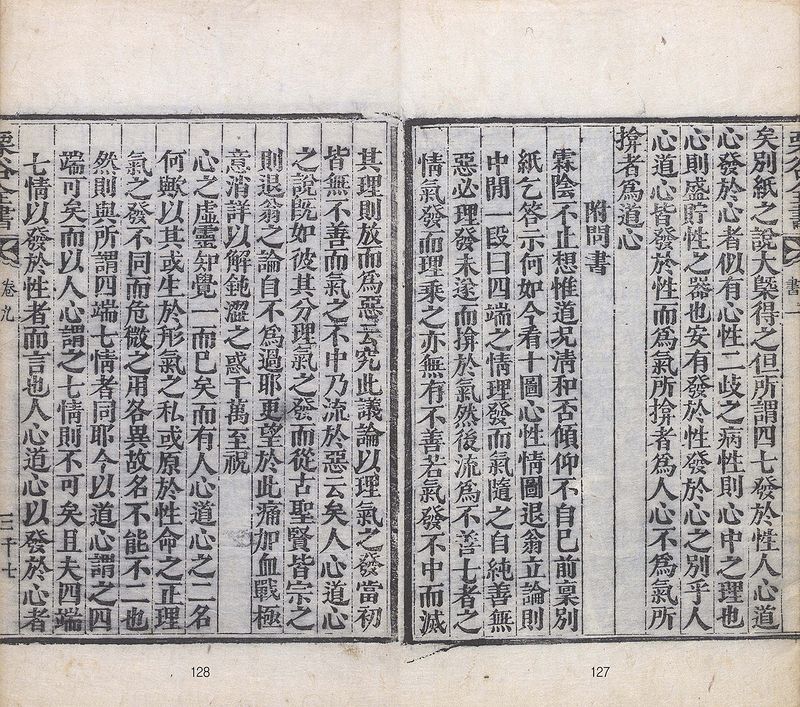 矣別紙之說大槩得之但所謂四七發於性人心道
心發於心者似有心性二歧之病性則心中之理也
心則盛貯性之器也安有發於性發於心之別乎人
心道心皆發於性而爲氣所揜者爲人心不爲氣所
揜者爲道心
附問書
霖陰不止想惟道況淸和否傾仰不自已前稟別
紙乞答示何如今看十圖心性情圖退翁立論則
中間一段曰四端之情理發而氣隨之自純善無
惡必理發未遂而揜於氣然後流爲不善七者之
情氣發而理乘之亦無有不善若氣發不中而滅
書一
127
其理則放而爲惡云究此議論以理氣之發當初
皆無不善而氣之不中乃流於惡云矣人心道心
之說旣如彼其分理氣之發而從古聖賢皆宗之
則退翁之論自不爲過耶更望於此痛加血戰極
意消詳以解鈍澀之惑千萬至祝
心之虛靈知覺一而已矣而有人心道心之二名
何歟以其或生於形氣之私或原於性命之正理
氣之發不同而危微之用各異故名不能不二也
然則與所謂四端七情者同耶今以道心謂之四
端可矣而以人心謂之七情則不可矣且夫四端
七情以發於性者而言也人心道心以發於心者
栗谷全書
卷九
三十七
128